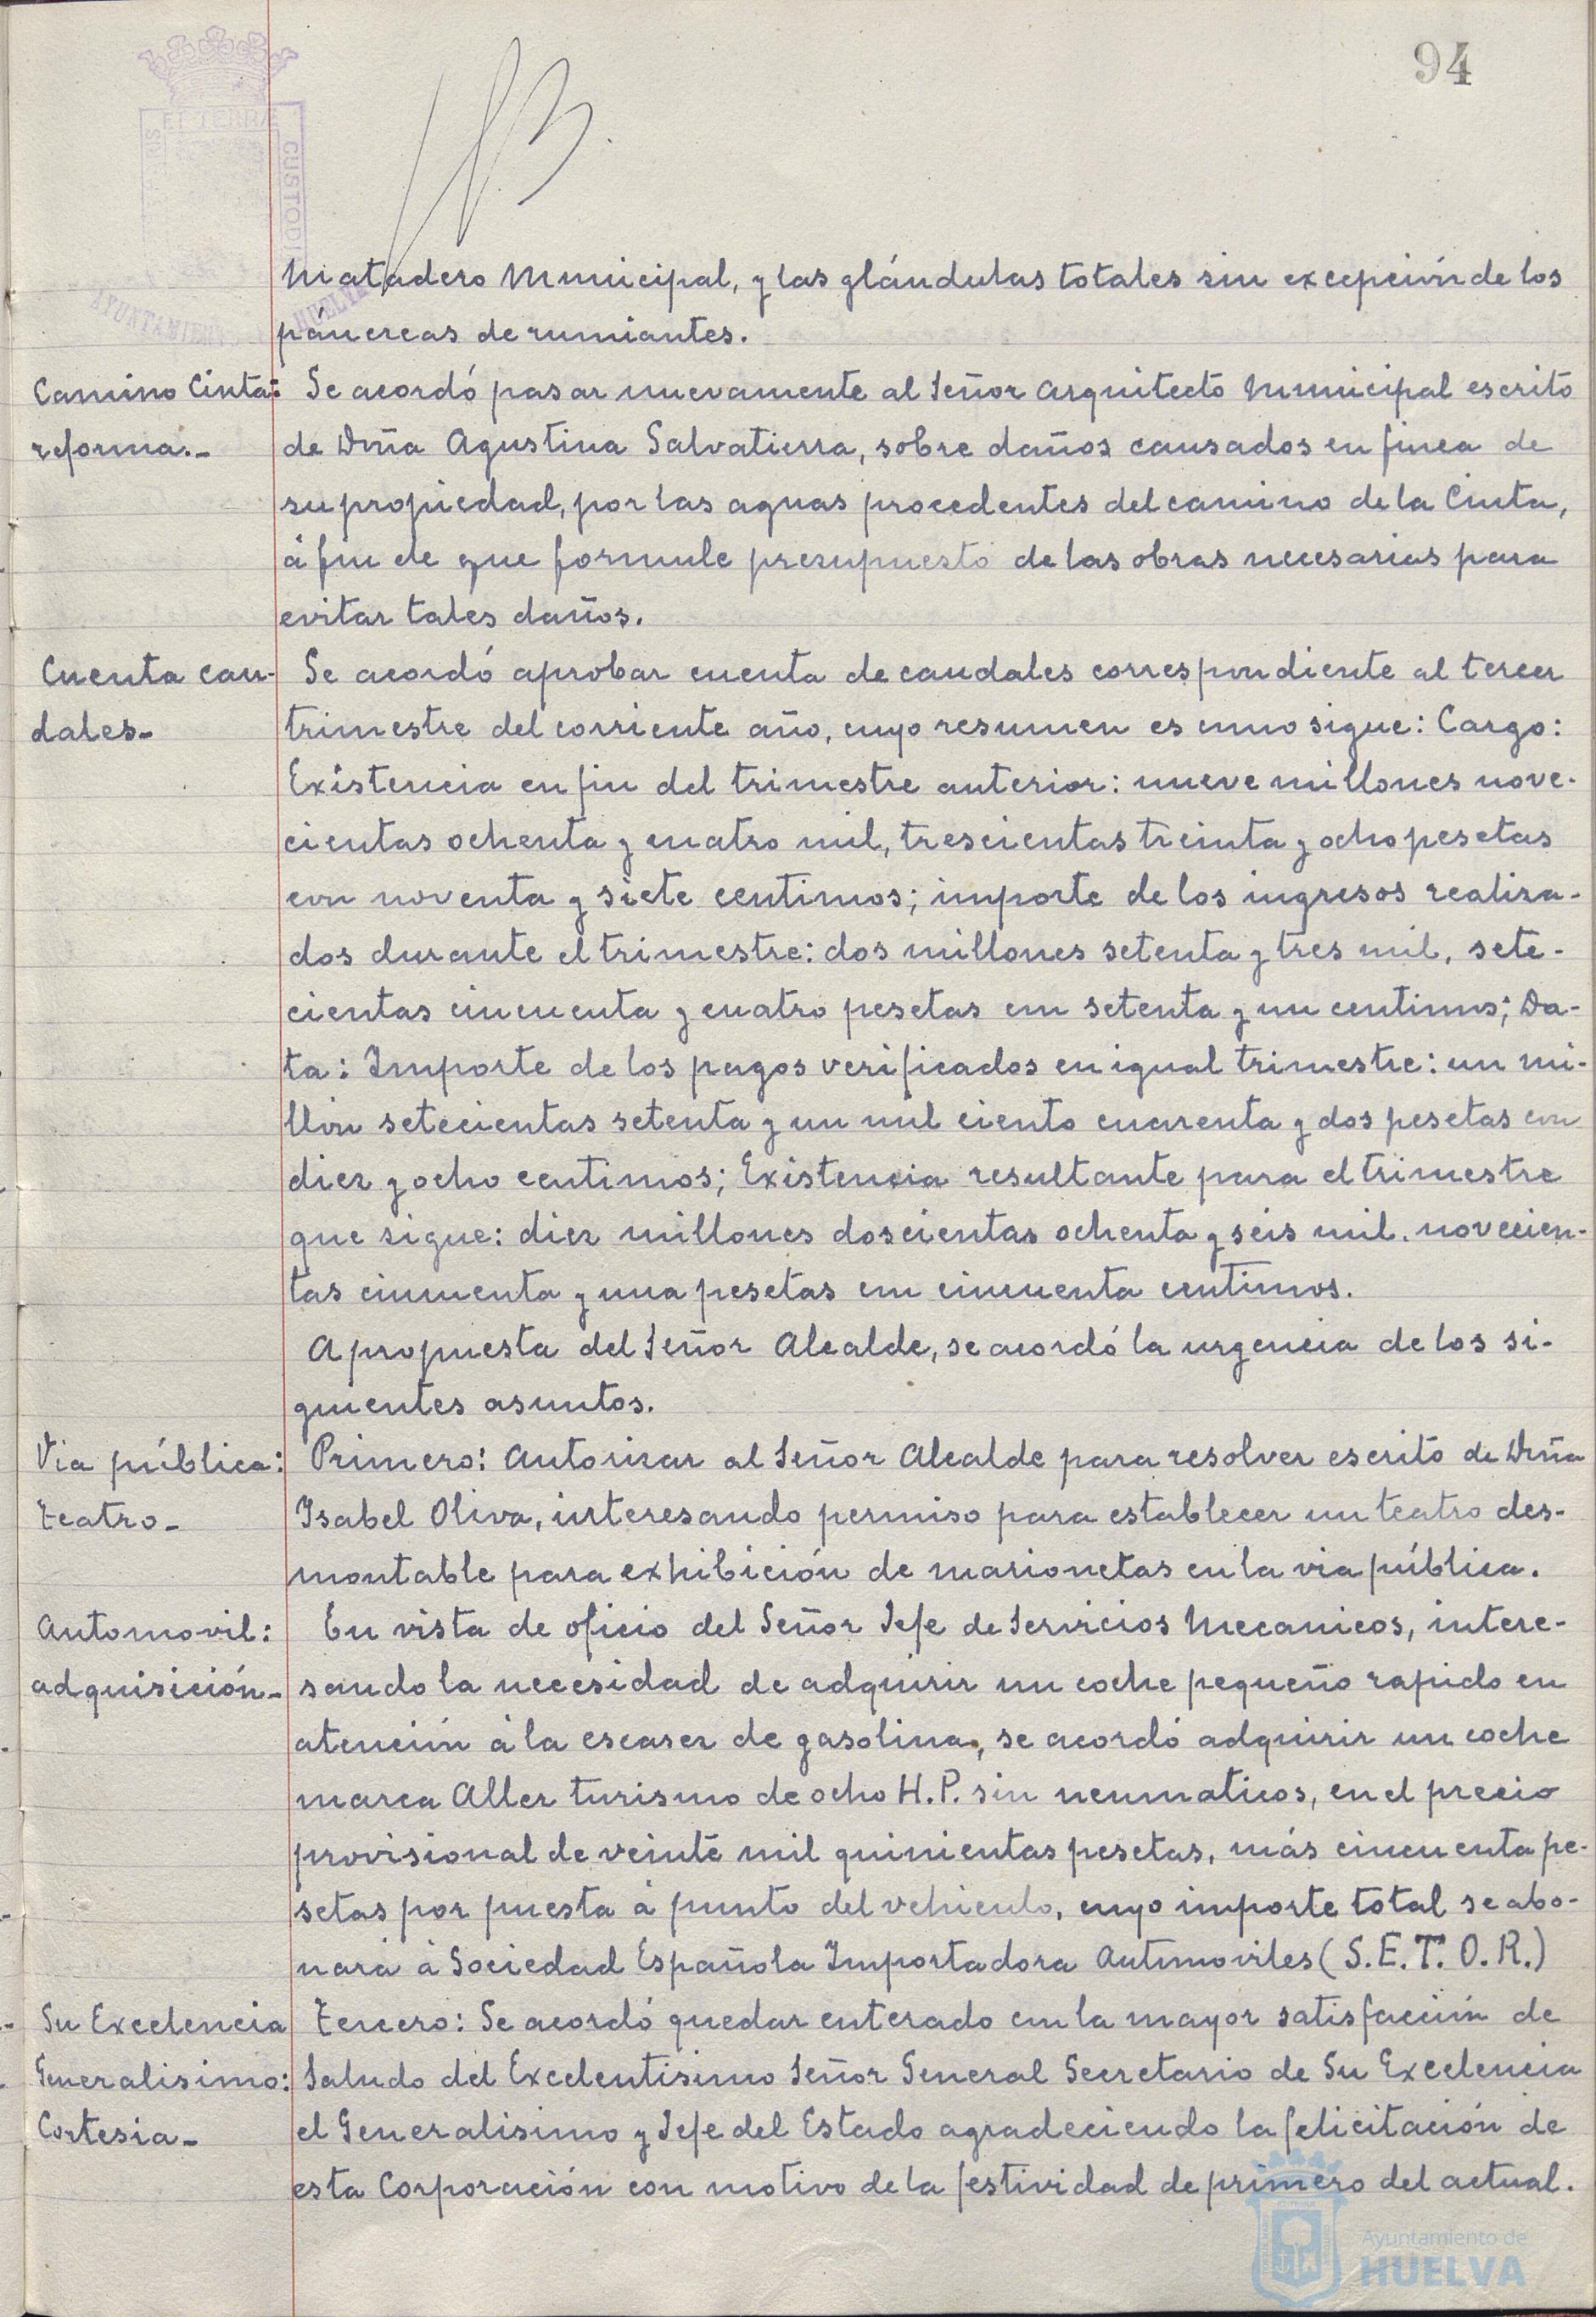 94
ET TERRÆ
CUSTODI
AYUNTAMIENTO
HUELVA
Matadero Municipal, y las glándulas totales sin excepción de los
páncreas de rumiantes.
Camino Cinta: Se acordó pasar nuevamente al Señor Arquitecto Municipal escrito
reforma.- de Dña Agustina Salvatierra, sobre daños causados en finca de
su propiedad, por las aguas procedentes del camino de la Cinta,
á fin de que formule presupuesto de las obras necesarias para
evitar tales daños.
Cuenta cau- Se acordó aprobar cuenta de caudales correspondiente al tercer
dales- trimestre del corriente año, cuyo resumen es como sigue: Cargo:
Existencia en fin del trimestre anterior: nueve millones nove-
cientas ochenta y cuatro mil, trescientas treinta y ocho pesetas
con noventa y siete centimos; importe de los ingresos realiza-
dos durante el trimestre: dos millones setenta y tres mil, sete-
cientas cincuenta y cuatro pesetas con setenta y un centimos; Da-
ta: Importe de los pagos verificados en igual trimestre: un mi-
llón setecientas setenta y un mil ciento cuarenta y dos pesetas con
diez y ocho centimos; Existencia resultante para el trimestre
que sigue: diez millones doscientas ochenta y seis mil. novecien-
tas cincuenta y una pesetas con cincuenta centimos.
A propuesta del Señor Alcalde, se acordó la urgencia de los si-
guientes asuntos.
Via pública: Primero: Autorizar al Señor Alcalde para resolver escrito de Dña
teatro- Isabel Oliva, interesando permiso para establecer un teatro des-
montable para exhibición de marionetas en la via pública.
Automovil: En vista de oficio del Señor Jefe de Servicios Mecanicos, intere-
adquisición- sando la necesidad de adquirir un coche pequeño rapido en
atención á la escasez de gasolina, se acordó adquirir un coche
marca Aller turismo de ocho H.P. sin neumaticos, en el precio
provisional de veinte mil quinientas pesetas, más cincuenta pe-
setas por puesta á punto del vehiculo, cuyo importe total se abo-
nará á Sociedad Española Importadora Automoviles (S.E.T.O.R.)
Su Excelencia Tercero: Se acordó quedar enterado con la mayor satisfacción de
Generalisimo: Saludo del Excelentisimo Señor General Secretario de Su Excelencia
Cortesia- el Generalisimo y Jefe del Estado agradeciendo la felicitación de
esta Corporación con motivo de la festividad de primero del actual.
Ayuntamiento de
HUELVA